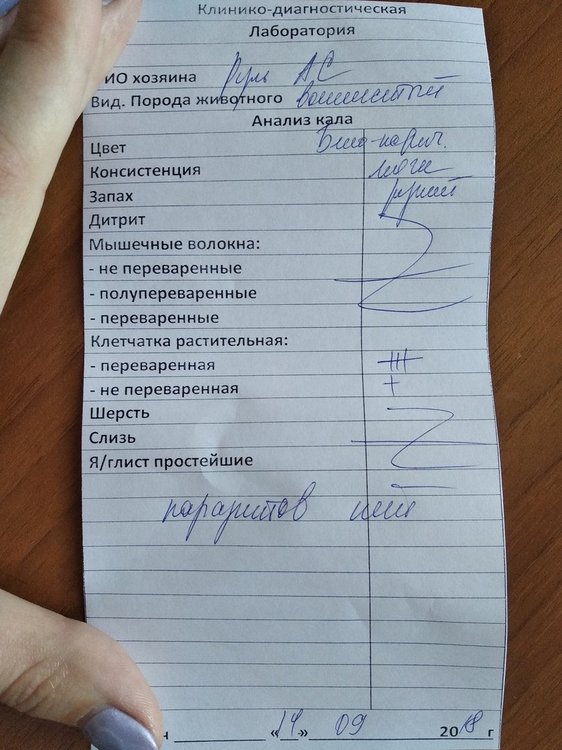 Клинико-диагностическая
Лаборатория
ИО хозяина Руль АС
Вид. Порода животного волнистый
Анализ кала
Цвет
Консистенция
Запах
Дитрит
Мышечные волокна:
- не переваренные
- полупереваренные
- переваренные
Клетчатка растительная:
- переваренная +++
- не переваренная +
Шерсть
Слизь
Я/глист простейшие –
паразитов нет
«14» 09 2018 г